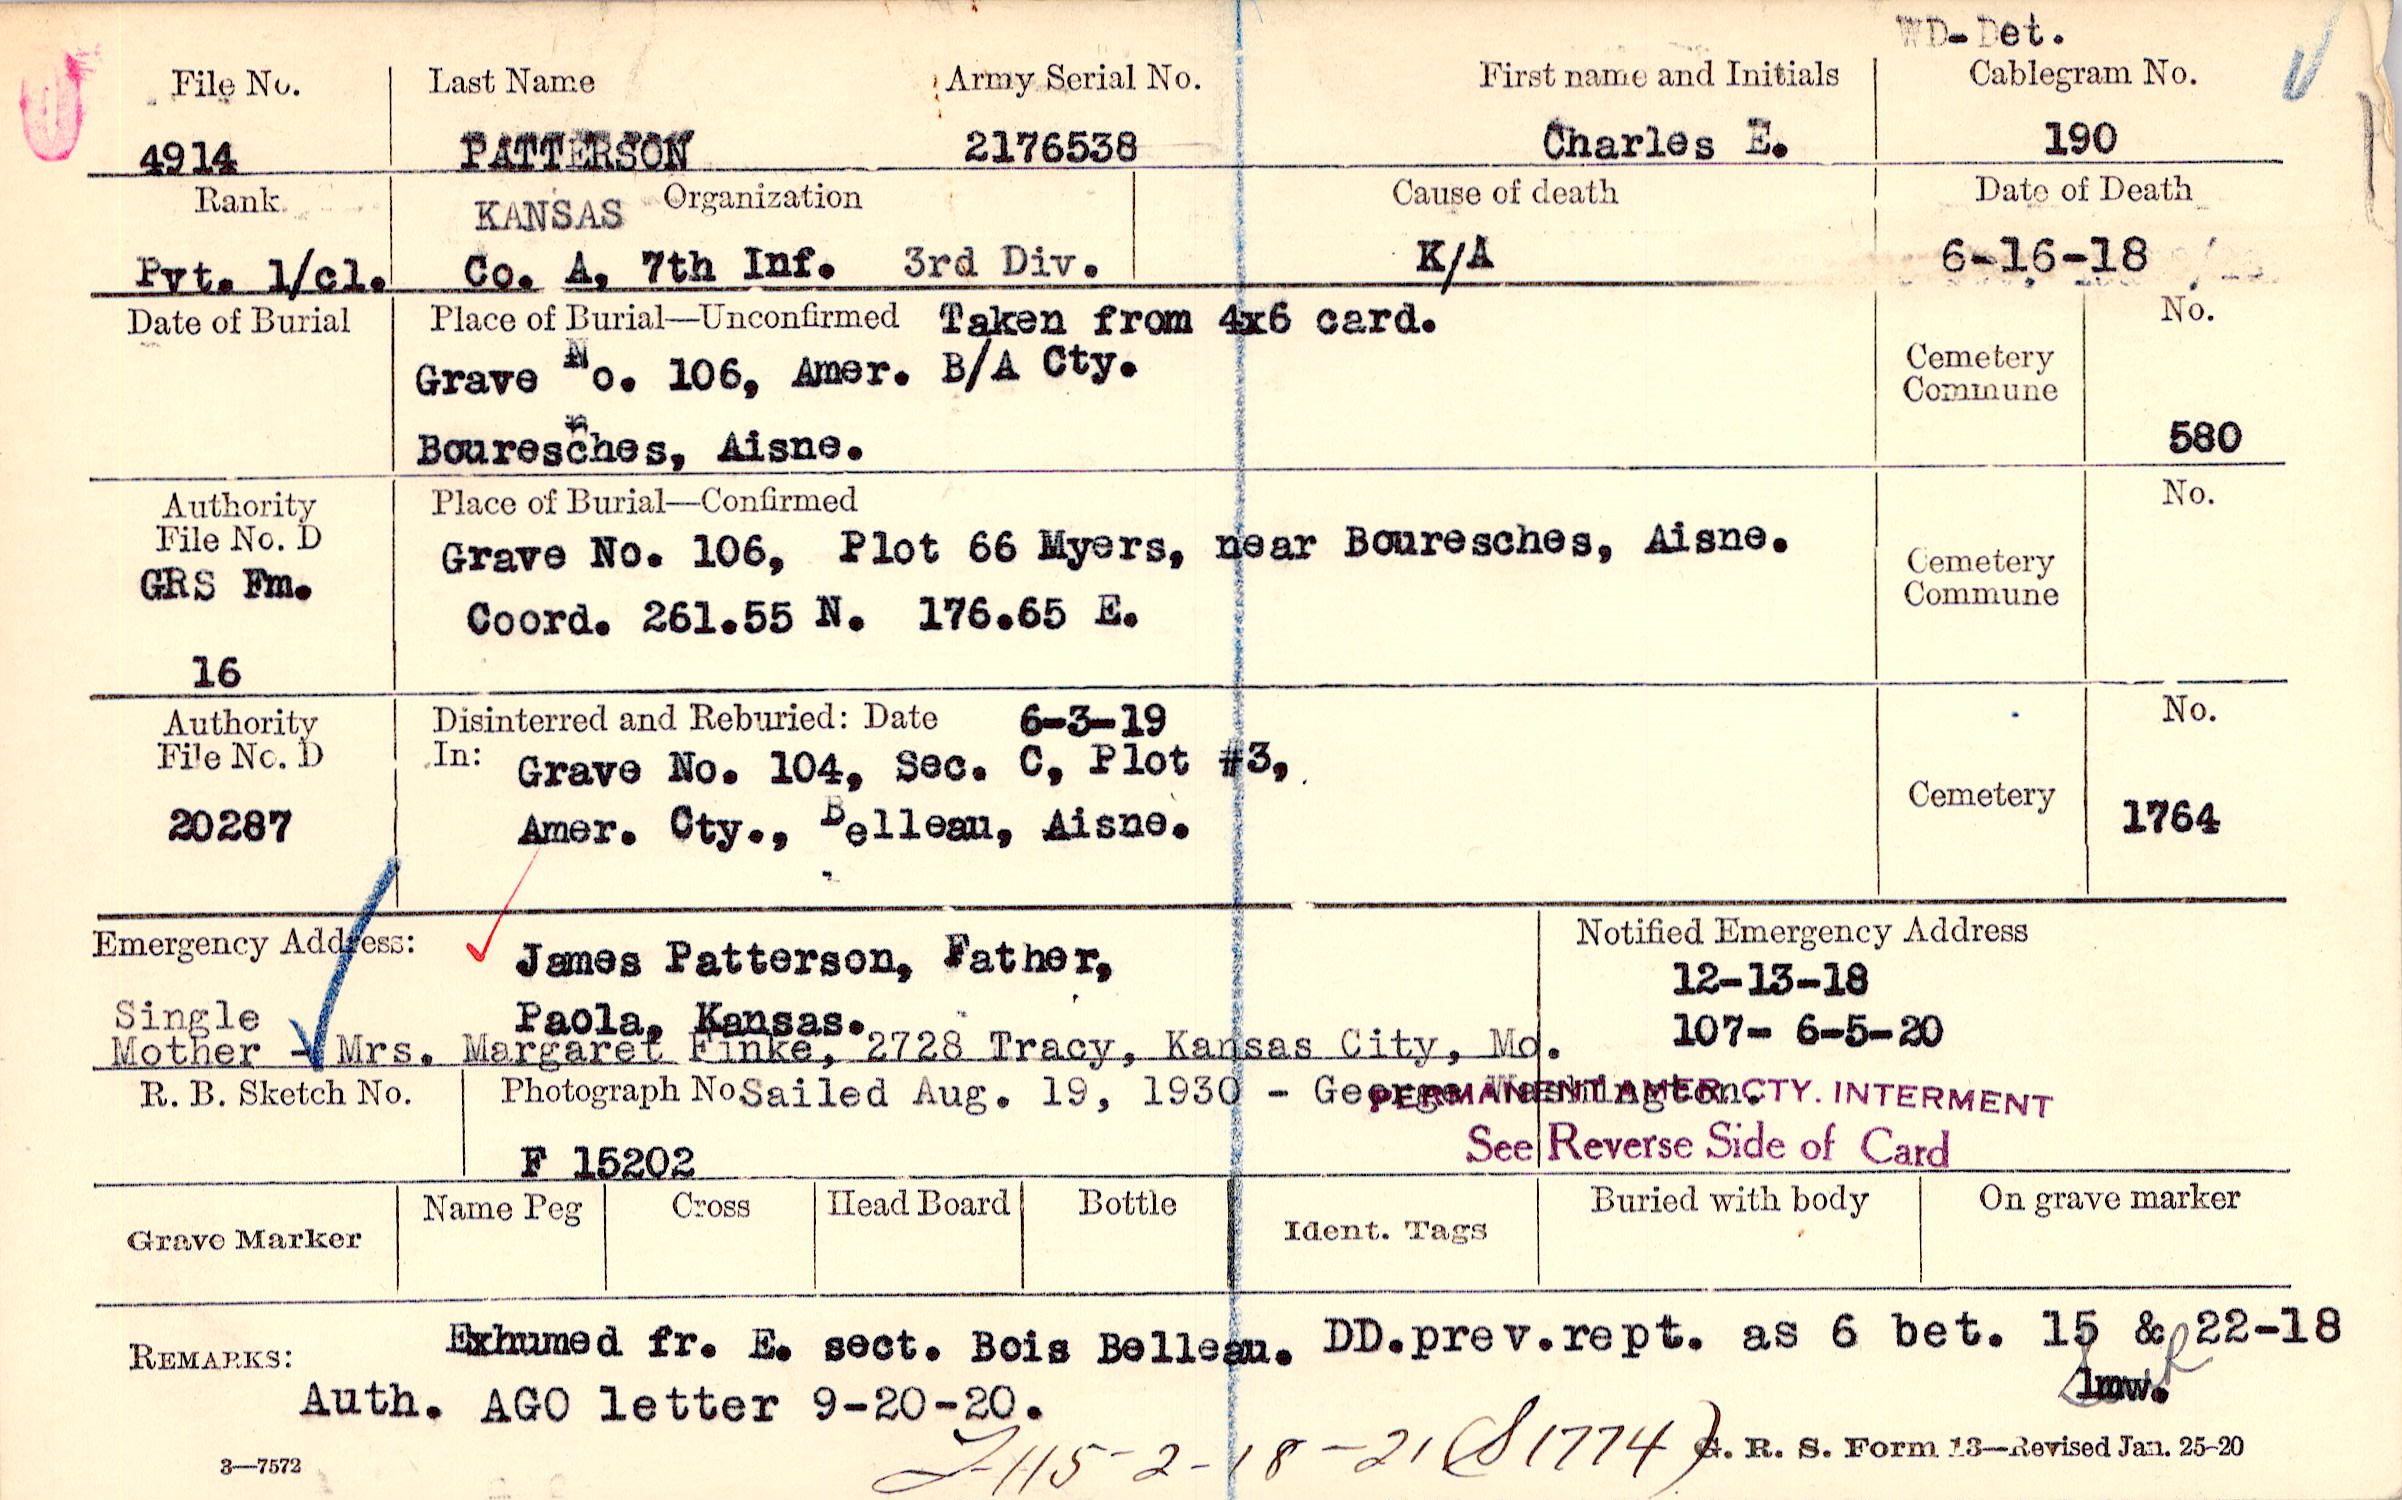 WD-Det.
File No. Last Name Army Serial No. First name and Initials Cablegram No.
4914 PATTERSON 2176538 Charles E. 190
Rank KANSAS Organization Cause of death Date of Death
Pvt. 1/cl. Co. A, 7th Inf. 3rd Div. K/A 6-16-18
Date of Burial Place of Burial—Unconfirmed Taken from 4x6 card. No.
Grave No. 106, Amer. B/A Cty. Cemetery Commune
Bouresches, Aisne. 580
Authority File No. D Place of Burial—Confirmed No.
GRS Fm. Grave No. 106, Plot 66 Myers, near Bouresches, Aisne. Cemetery Commune
Coord. 261.55 N. 176.65 E.
16
Authority File No. D Disinterred and Reburied: Date 6-3-19 No.
In: Grave No. 104, Sec. C, Plot #3,
20287 Amer. Cty., Belleau, Aisne. Cemetery 1764
Emergency Address: James Patterson, Father, Notified Emergency Address
12-13-18
Single Paola, Kansas. 107- 6-5-20
Mother - Mrs. Margaret Finke, 2728 Tracy, Kansas City, Mo.
R. B. Sketch No. Photograph No Sailed Aug. 19, 1930 - George Washington.
PERMANENT AMER. CTY. INTERMENT
F 15202 See Reverse Side of Card
Grave Marker Name Peg Cross Head Board Bottle Ident. Tags Buried with body On grave marker
REMARKS: Exhumed fr. E. sect. Bois Belleau. DD.prev.rept. as 6 bet. 15 & 22-18
Auth. AGO letter 9-20-20. lmw.
115-2-18-21 (S1774)
3—7572 G. R. S. Form 13—Revised Jan. 25-20